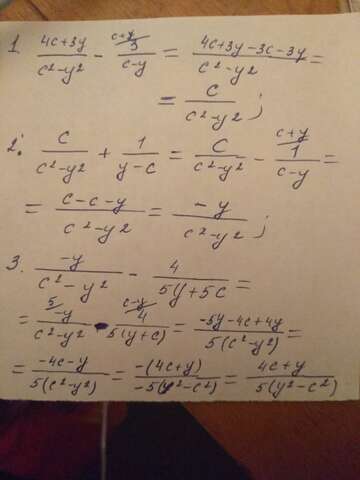 1. (4c+3y)/(c²-y²) - (c+y/ 3)/(c-y) = (4c+3y-3c-3y)/(c²-y²) =
= c/(c²-y²);
2. c/(c²-y²) + 1/(y-c) = c/(c²-y²) - (c+y/ 1)/(c-y) =
= (c-c-y)/(c²-y²) = -y/(c²-y²);
3. -y/(c²-y²) - 4/(5y+5c) =
= (5/ -y)/(c²-y²) - (c-y/ 4)/(5(y+c)) = (-5y-4c+4y)/(5(c²-y²)) =
= (-4c-y)/(5(c²-y²)) = -(4c+y)/(-5(y²-c²)) = (4c+y)/(5(y²-c²))